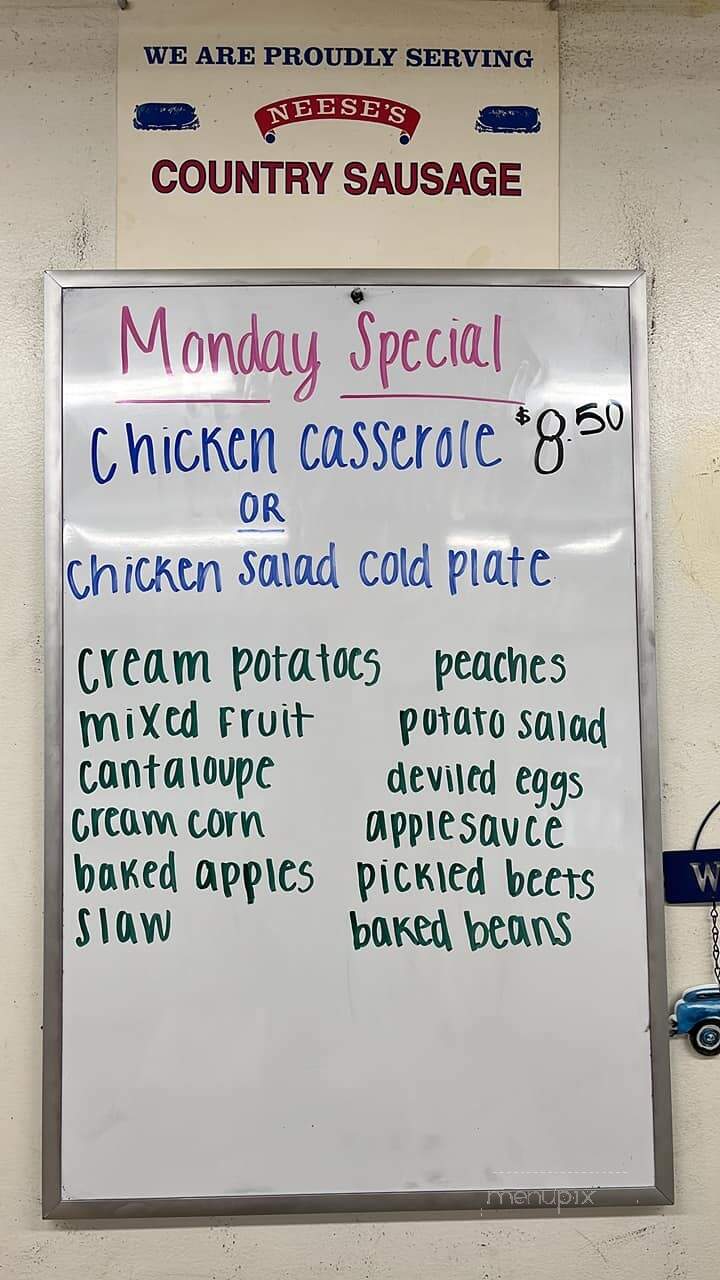 WE ARE PROUDLY SERVING
NEESE'S
COUNTRY SAUSAGE
Monday Special
Chicken casserole $8.50
OR
Chicken salad cold plate
cream potatoes peaches
mixed fruit potato salad
cantaloupe deviled eggs
cream corn applesauce
baked apples pickled beets
slaw baked beans
W
menupix